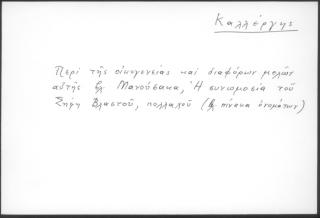 Καλλέργης
Περὶ τῆς οἰκογενείας καὶ διαφόρων μελῶν
αὐτῆς βλ Μανούσακα, Ἡ συνωμοσία τοῦ
Σήφη Βλαστοῦ, πολλαχοῦ (βλ πίνακα ὀνομάτων)